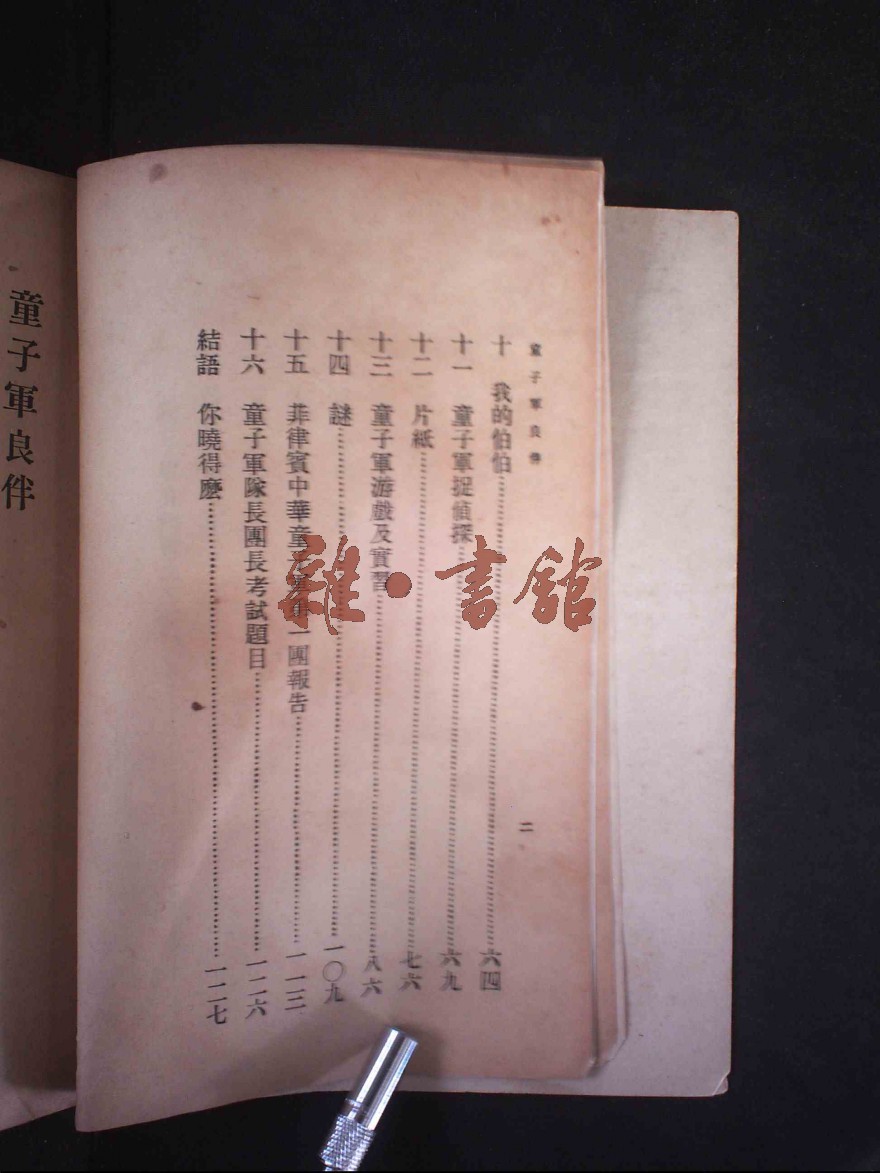 童子軍良伴
二
十 我的怕怕……六四
十一 童子軍捉偵探……六九
十二 片紙……七六
十三 童子軍游戲及實習……八六
十四 謎……一〇九
十五 菲律賓中華童子軍第一團報告……一一三
十六 童子軍隊長團長考試題目……一二六
結語 你曉得麽……一二七
童子軍良伴
雜·書館